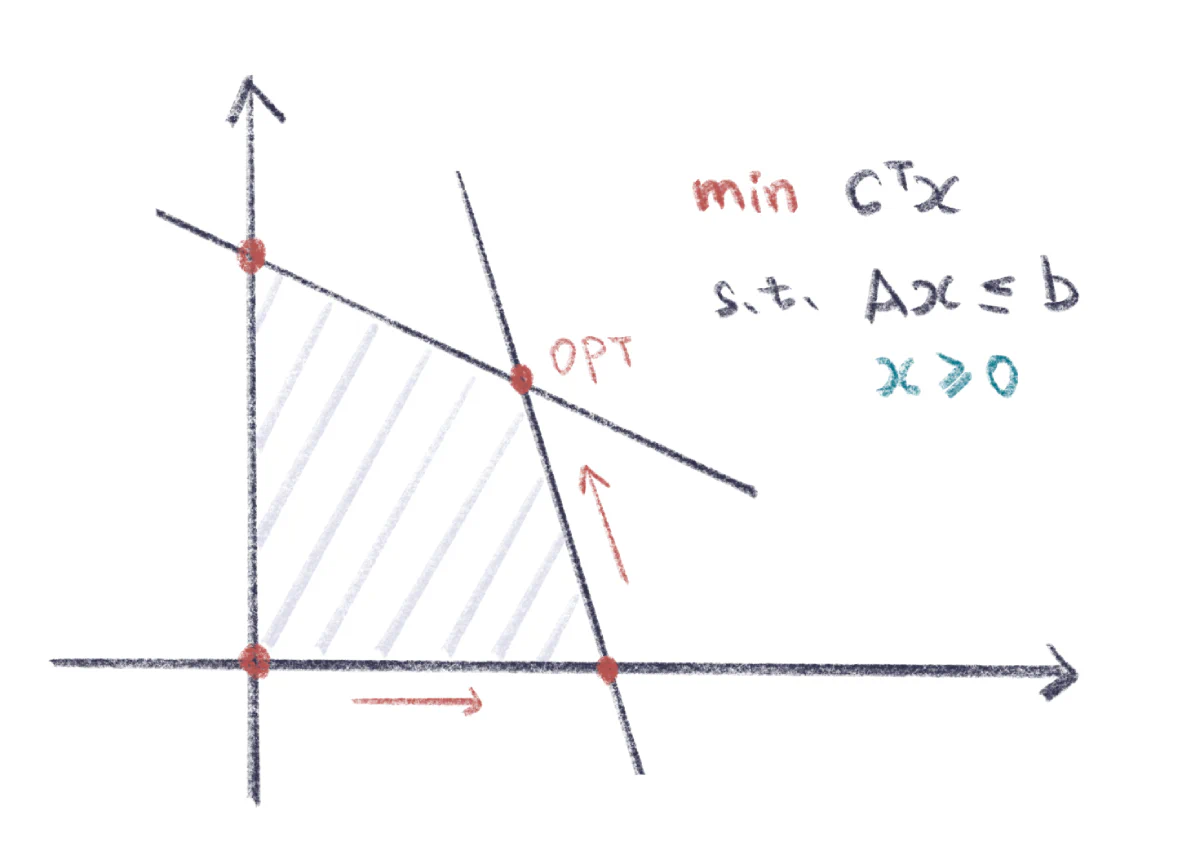 min Cᵀx
s.t. Ax ≤ b
x ≥ 0
OPT